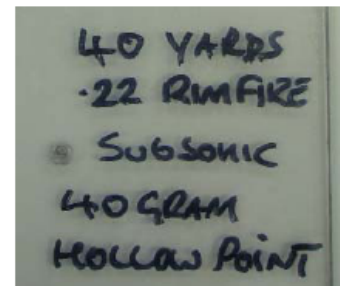 40 YARDS
.22 RIMFIRE
SUBSONIC
40 GRAM
HOLLOW POINT